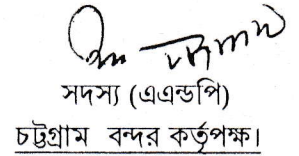 সদস্য (এএন্ডপি)
চট্টগ্রাম বন্দর কর্তৃপক্ষ।